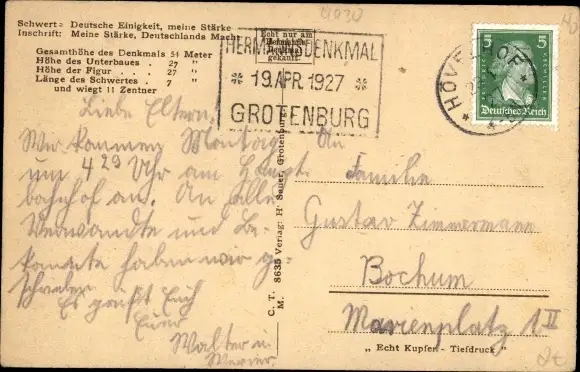 Schwert= Deutsche Einigkeit, meine Stärke
Inschrift: Meine Stärke, Deutschlands Macht
Gesamthöhe des Denkmals 54 Meter
Höhe des Unterbaues . 27 "
Höhe der Figur . . . 27 "
Länge des Schwertes . 7 "
und wiegt 11 Zentner
Echt nur am
Hermanns
Denkmal
gekauft.
HERMANNSDENKMAL
19.APR.1927
GROTENBURG
HÖVELHOF
5 5
Deutsches Reich
Liebe Eltern!
Wir kommen Montag
um 4 29 Uhr am Haupt-
bahnhof an. An alle
Verwandte und Be-
kannte haben wir ge-
schrieben
Es grüßt Euch
Euer
Walter u.
Werner
C. T. 8635 Verlag: H. Sauer, Grotenburg
M.
An
Familie
Gustav Zimmermann
Bochum
Marienplatz 1 II
„ Echt Kupfer - Tiefdruck "